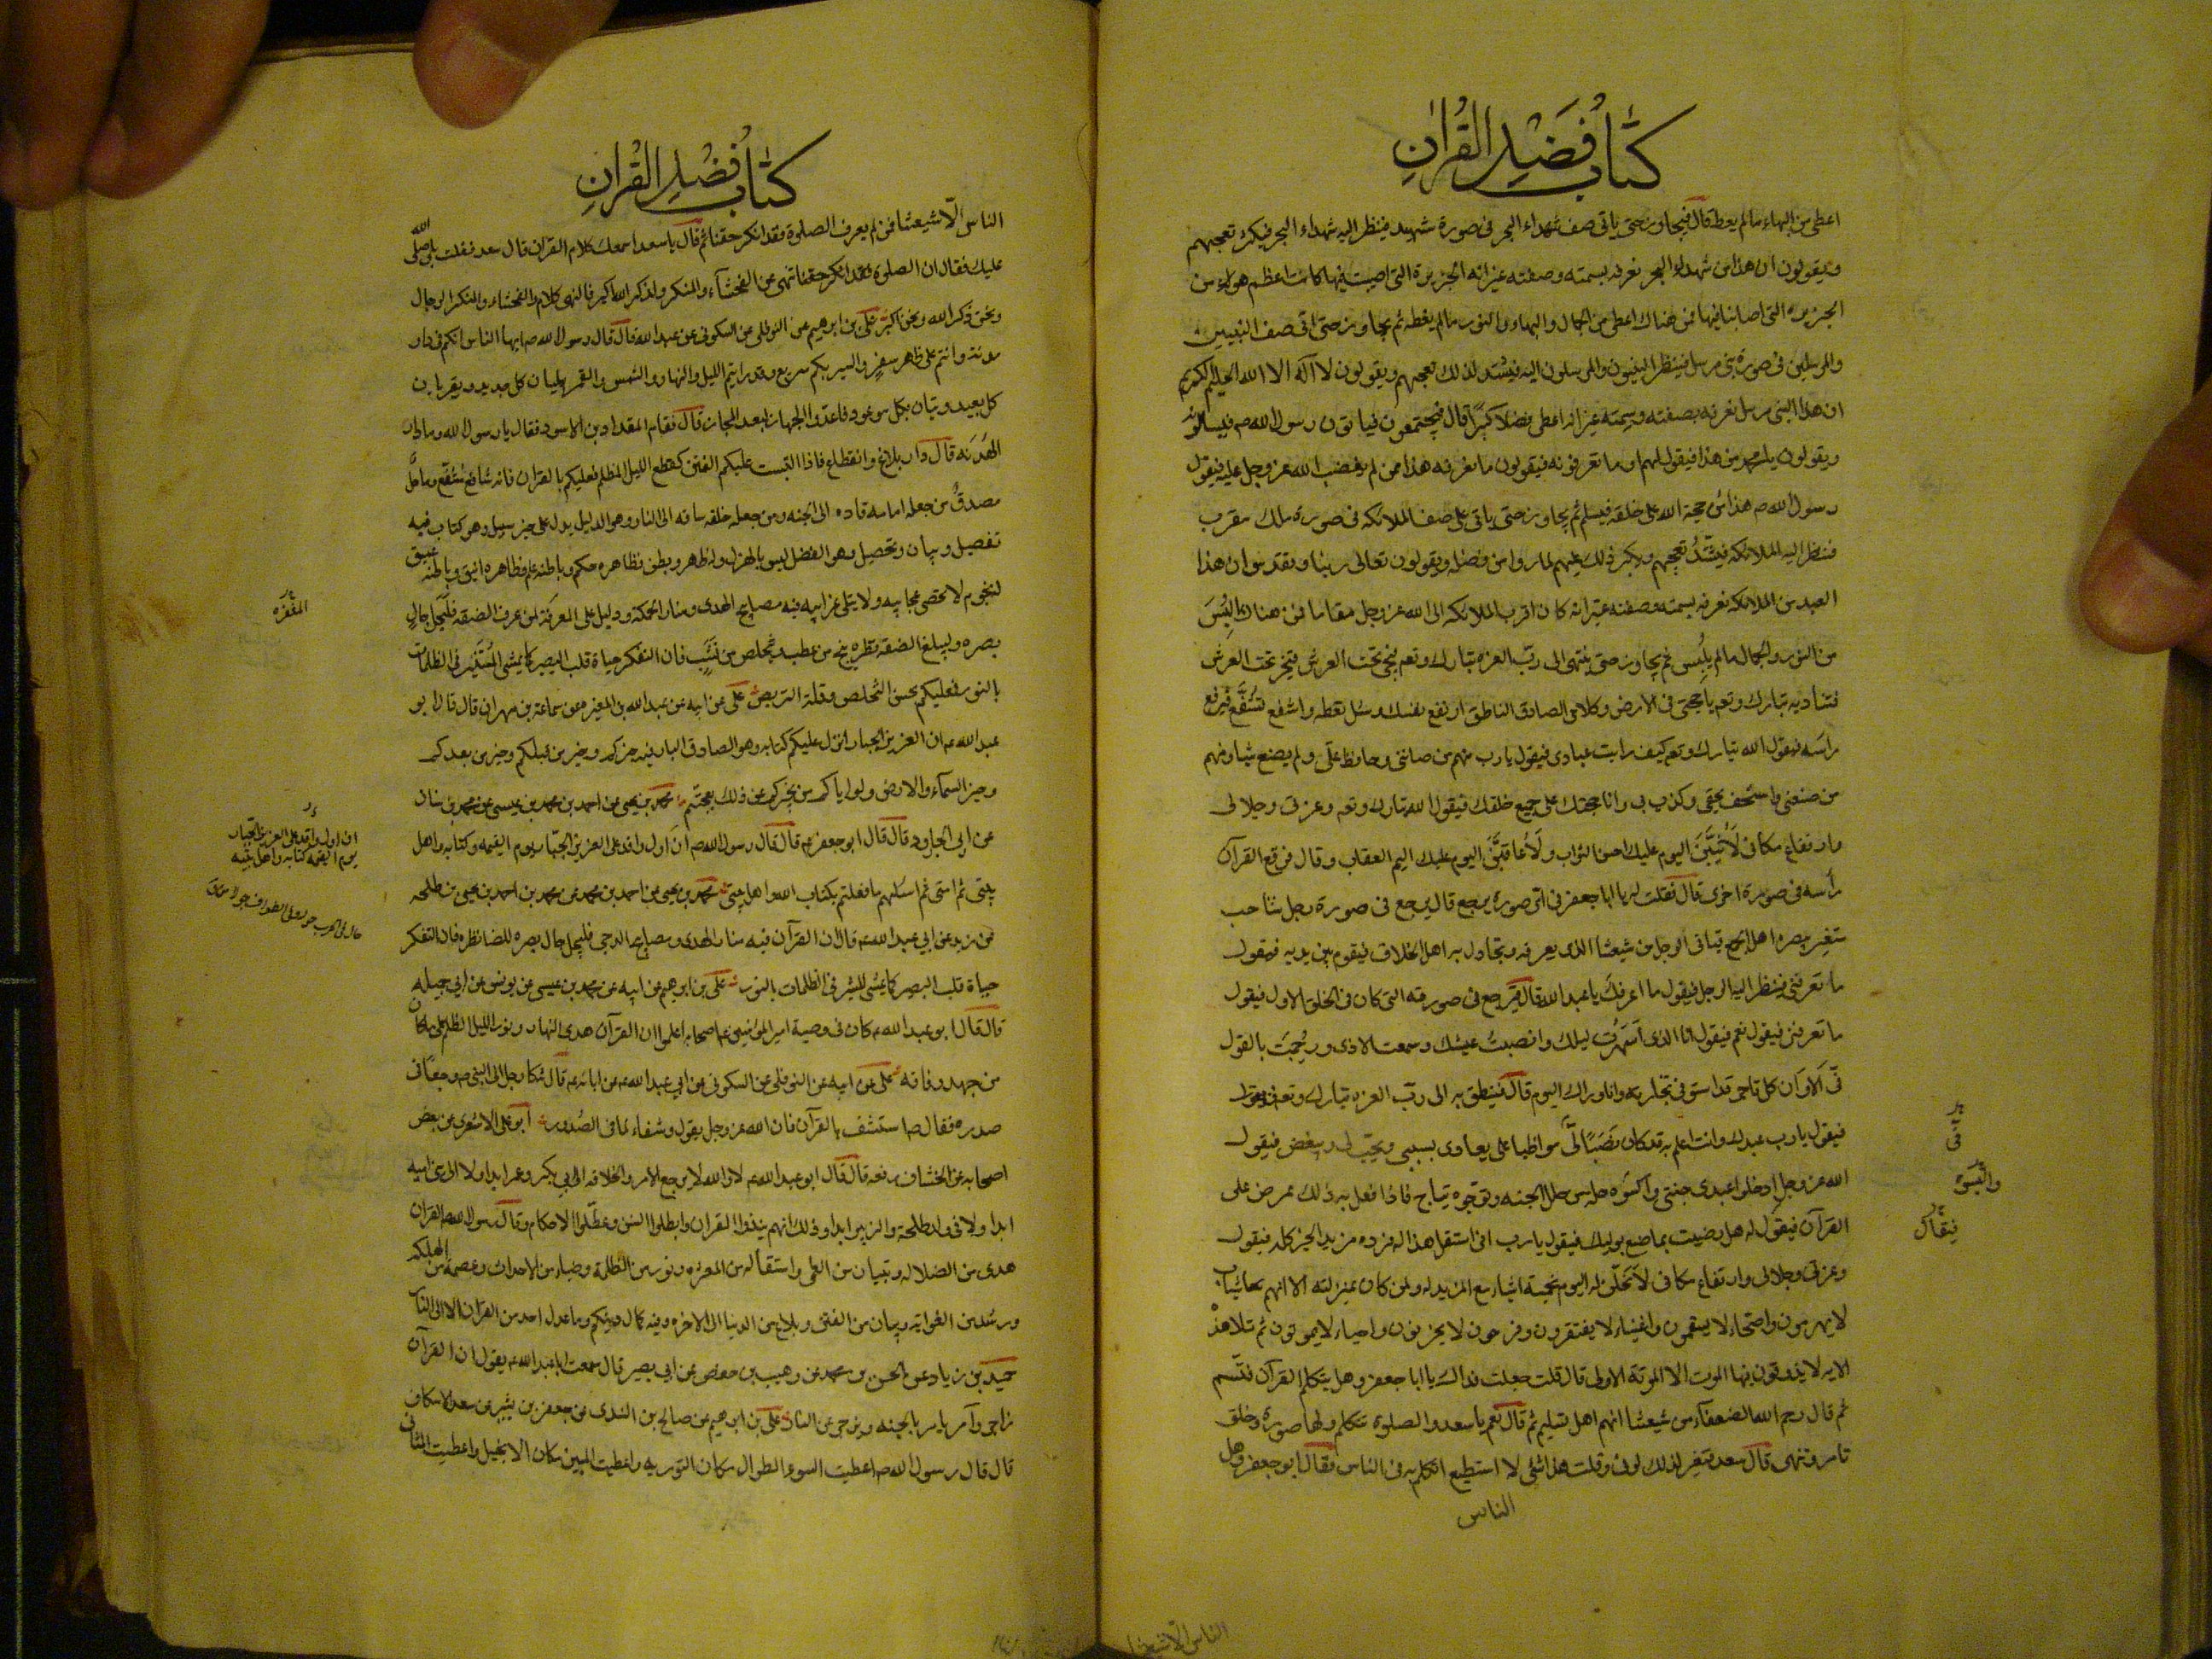 كتاب فضل القران
اعطى من البهاء ما لم يعط قال فيجاوز حتى ياتى صف شهداء البحر فى صورة شهيد فينظر اليه شهداء البحر فيكثر تعجبهم
ويقولون ان هذا من شهداء البحر نعرفه بسمته وصفته غير ان الجزيرة التى اصيب فيها كانت اعظم هولا من
الجزيرة التى اصبنا فيها فمن هناك اعطى من الجمال والبهاء والنور ما لم يعطه ثم يجاوز حتى اتى صف النبيين
والمرسلين فى صورة نبى مرسل فينظر النبيون والمرسلون اليه فيشتد لذلك تعجبهم ويقولون لا آله الا الله الحليم الكريم
ان هذا النبى مرسل نعرفه بصفته وسمته غير انه اعطى فضلا كثيرا قال فيجتمعون فياتون رسول الله ص فيسالونه
ويقولون يا محمد من هذا فيقول لهم او ما تعرفونه فيقولون ما نعرفه هذا ممن لم يغضب الله عز وجل عليه فيقول
رسول الله ص هذا حجة الله على خلقه فيسلم ثم يجاوز حتى ياتى على صف الملائكه فى صورة ملك مقرب
فينظر اليه الملائكه فيشتد تعجبهم ويكبر ذلك عليهم لما راوا من فضله ويقولون تعالى ربنا وتقدس ان هذا
العبد من الملائكه نعرفه بسمته وصفته غير انه كان اقرب الملائكه الى الله عز وجل مقاما فمن هناك البس
من النور والجمال ما لم يلبس ثم يجاوز حتى ينتهى الى رب العزه تبارك وتعم فيخر تحت العرش
فيناديه تبارك وتعم يا حجتى فى الارض وكلامى الصادق الناطق ارفع راسك وسل تعطه واشفع تشفع فيرفع
راسه فيقول الله تبارك وتعم كيف رايت عبادى فيقول يا رب منهم من صاننى وحافظ على ولم يضيع شيا ومنهم
من ضيعنى واستخف بحقى وكذب بى وانا حجتك على جميع خلقك فيقول الله تبارك وتعم وعزتى وجلالى
وارتفاع مكانى لاثيبن اليوم عليك احسن الثواب ولاعاقبن اليوم عليك اليم العقاب وقال فيرفع القرآن
رأسه فى صورة اخرى قال فقلت له يا ابا جعفر فى اى صورة يرجع قال يرجع فى صورة رجل شاحب
متغير يبصره اهل الجمع فياتى الرجل من شيعتنا الذى يعرفه ويجادل به اهل الخلاف فيقوم بين يديه فيقول
ما تعرفنى فينظر اليه الرجل فيقول ما اعرفك يا عبد الله قال فيرجع فى صورته التى كان فى الخلق الاول فيقول
ما تعرفنى فيقول نعم فيقول انا الذى اسهرت ليلك وانصبت عيشك وسمعت الاذى ورجمت بالقول
فى الا وان كل تاجر قد استوفى تجارته وانا وراءك اليوم قال فينطلق به الى رب العزه تبارك وتعم فيقول
فيقول يا رب عبدك وانت اعلم به قد كان نصبا لى مواظبا على يعادى بسببى ويحب لى ويبغض فيقول
الله عز وجل ادخلوا عبدى جنتى واكسوه حلة من حلل الجنه وتوجوه بتاج فاذا فعل به ذلك عرض على
القرآن فيقول له هل رضيت بما صنع بوليك فيقول يا رب انى استقل هذا له فزده مزيد الخير كله فيقول
وعزتى وجلالى وارتفاع مكانى لانحلن له اليوم خمسة اشياء مع المزيد له ولمن كان بمنزلته الا انهم شباب
لا يهرمون واصحاء لا يسقمون واغنياء لا يفتقرون وفرحون لا يحزنون واحياء لا يموتون ثم تلا هذه
الايه لا يذوقون فيها الموت الا الموتة الاولى قال قلت جعلت فداك يا ابا جعفر وهل يتكلم القرآن فتبسم
ثم قال رحم الله الضعفآء من شيعتنا انهم اهل تسليم ثم قال نعم يا سعد والصلوة تتكلم ولها صورة وخلق
تامر وتنهى قال سعد فتغير لذلك لونى وقلت هذا شئ لا استطيع اتكلم به فى الناس فقال ابو جعفر وهل
الناس
فى
والبسوه
فيقال
كتاب فضل القران
الناس الا شيعتنا فمن لم يعرف الصلوة فقد انكر حقنا ثم قال يا سعد اسمعك كلام القران قال سعد فقلت بلى صلى الله
عليك فقال ان الصلوة تنهى عن الفحشآء والمنكر ولذكر الله اكبر فالنهى كلام والفحشاء والمنكر رجال
ونحن ذكر الله ونحن اكبر على بن ابرهيم عن النوفلى عن السكونى عن عبد الله قال قال رسول الله ص ايها الناس انكم فى دار
هدنة وانتم على ظهر سفر والسير بكم سريع وقد رايتم الليل والنهار والشمس والقمر يبليان كل جديد ويقربان
كل بعيد وياتيان بكل موعود فاعدوا الجهاز لبعد المجاز قال فقام المقداد بن الاسود فقال يا رسول الله وما دار
الهدنه قال دار بلاغ وانقطاع فاذا التبست عليكم الفتن كقطع الليل المظلم فعليكم بالقران فانه شافع مشفع وماحل
مصدق من جعله امامه قاده الى الجنه ومن جعله خلفه ساقه الى النار وهو الدليل يدل على خير سبيل وهو كتاب فيه
تفصيل وبيان وتحصيل وهو الفصل ليس بالهزل وله ظهر وبطن فظاهره حكم وباطنه علم ظاهره انيق وباطنه عميق
له نجوم لا تحصى عجايبه ولا تبلى غرايبه فيه مصابيح الهدى ومنار الحكمة ودليل على المعرفة لمن عرف الصفه فليجل جال
بصره وليبلغ الصفه نظره ينج من عطب ويخلص من نشب فان التفكر حياة قلب البصير كما يمشى المستنير فى الظلمات
بالنور فعليكم بحسن التخلص وقلة التربص على عن ابيه عن عبد الله بن المغيره عن سماعة بن مهران قال قال ابو
عبد الله ع ان العزيز الجبار انزل عليكم كتابه وهو الصادق البار فيه خبركم وخبر من قبلكم وخبر من بعدكم
وخبر السمآء والارض ولو اتاكم من يخبركم عن ذلك لعجبتم محمد بن يحيى عن احمد بن محمد بن عيسى عن محمد بن سنان
عن ابى الجارود قال قال ابو جعفر ع قال قال رسول الله ص انا اول وافد على العزيز الجبار يوم القيمه وكتابه واهل
بيتى ثم امتى ثم اسئلهم ما فعلتم بكتاب الله واهل بيتى محمد بن يحيى عن احمد بن محمد عن محمد بن احمد بن يحيى عن طلحه
بن زيد عن ابى عبد الله ع قال ان القرآن فيه منار الهدى ومصابيح الدجى فليجل جال بصره للضيا نظره فان التفكر
حياة قلب البصير كما يمشى المستنير فى الظلمات بالنور على بن ابرهيم عن ابيه عن محمد بن عيسى عن يونس عن ابى جميله
قال قال ابو عبد الله ع كان فى وصية امير المؤمنين ع اصحابه اعلموا ان القرآن هدى النهار ونور الليل المظلم على ما كان
من جهد وفاقه على عن ابيه عن النوفلى عن السكونى عن ابى عبد الله ع عن ابائه ع قال شكا رجل الى النبى ص وجعا فى
صدره فقال ص استشف بالقرآن فان الله عز وجل يقول وشفاء لما فى الصدور ابو على الاشعرى عن بعض
اصحابه عن الخشاف رفعه قال قال ابو عبد الله ع لا والله لا يرجع الامر والخلافه الى ابى بكر وعمر ابدا ولا الى بنى اميه
ابدا ولا فى ولد طلحة والزبير ابدا وذلك انهم نبذوا القران وابطلوا السنن وعطلوا الاحكام وقال رسول الله ص القران
هدى من الضلاله وتبيان من العمى واستقاله من العثره ونور من الظلمة وضياء من الاحداث وعصمة من الهلكه
ورشد من الغوايه وبيان من الفتن وبلاغ من الدنيا الى الاخره وفيه كمال دينكم وما عدل احد عن القران الا الى النار
حميد بن زياد عن الحسن بن محمد عن وهيب بن حفص عن ابى بصير قال سمعت ابا عبد الله ع يقول ان القرآن
زاجر وآمر يامر بالجنه ويزجر عن النار على بن ابرهيم عن صالح بن السندى عن جعفر بن بشير عن سعد الاسكاف
قال قال رسول الله ص اعطيت السور الطوال مكان التوريه واعطيت المئين مكان الانجيل واعطيت المثانى
ان اول وافد على العزيز الجبار
يوم القيمه كتابه واهل بيته
الناس الا شيعتنا